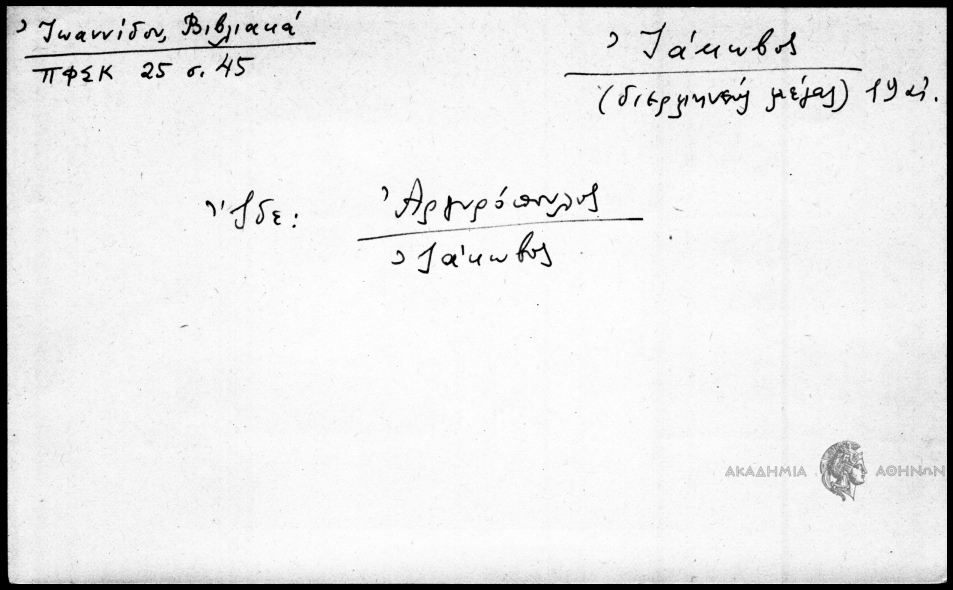 Ἰωαννίδου, Βιβλιακά
ΠΦΣΚ 25 σ. 45
Ἰάκωβος
(διερμηνεὺς μέγας) 19 αἰ.
Ἴδε: Ἀργυρόπουλος
Ἰάκωβος
ΑΚΑΔΗΜΙΑ ΑΘΗΝΩΝ